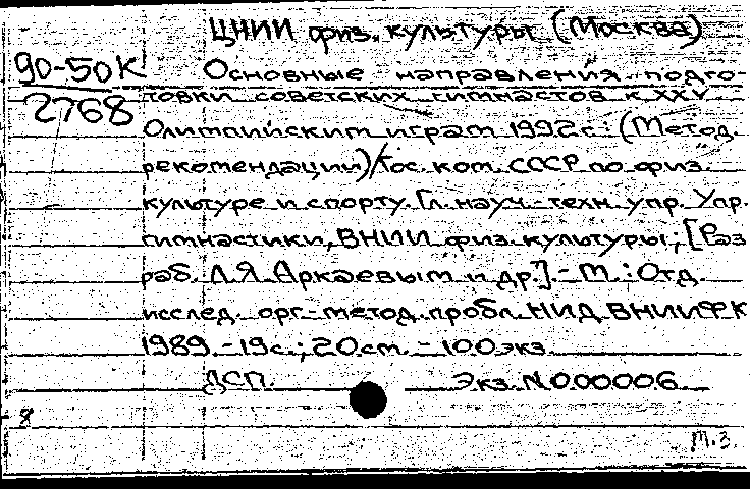 ЦНИИ физ. культуры (Москва)
90-50К
2768
Основные направления подго-
товки советских гимнастов к XXV
Олимпийским играм 1992г.: (Метод.
рекомендации)/Гос. ком. СССР по физ.
культуре и спорту. Гл. науч.-техн. упр. Упр.
гимнастики, ВНИИ физ. культуры; [Раз
раб. Л.Я. Аркаевым и др.] - М.: Отд.
исслед. орг.-метод. пробл. НИД ВНИИФК
1989. - 19с.; 20см. - 100экз.
ДСП. Экз. N000006
8
М.З.